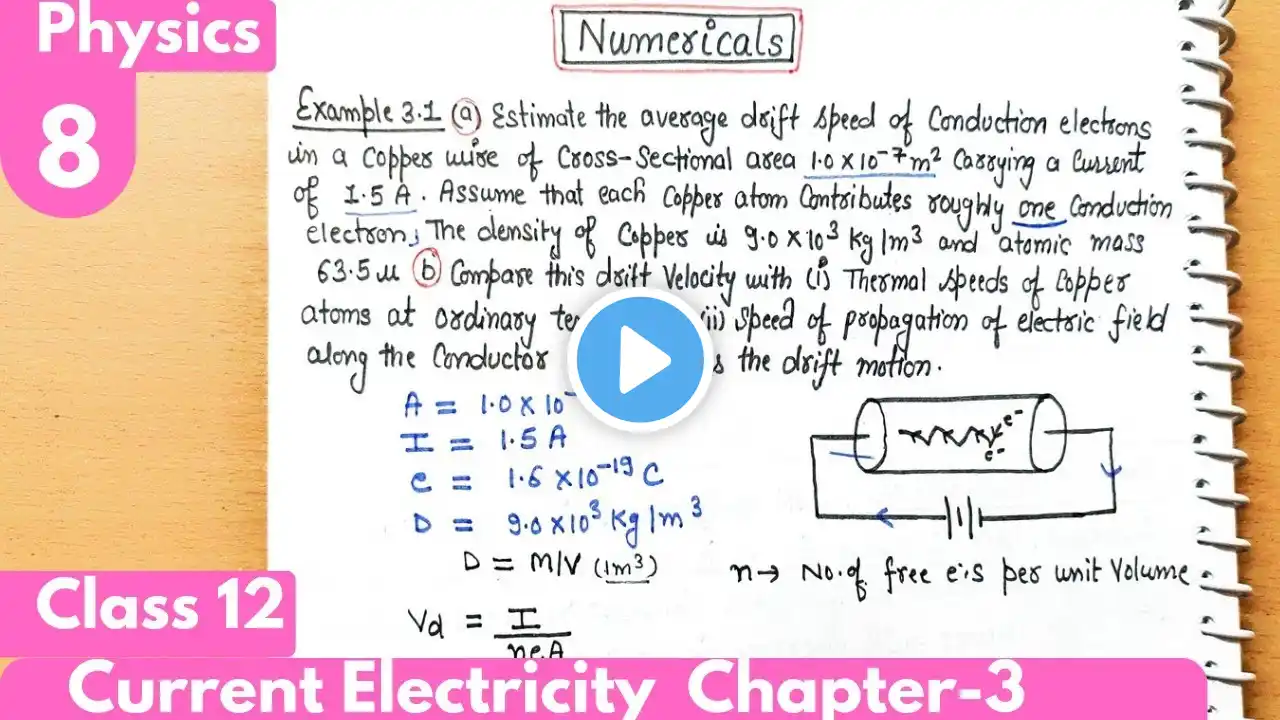 Physics
8
Numericals
Example 3.1 (a) Estimate the average drift speed of Conduction electrons
in a Copper wire of Cross-Sectional area 1.0 x 10⁻⁷ m² Carrying a Current
of 1.5 A. Assume that each Copper atom Contributes roughly one Conduction
electron, The density of Copper is 9.0 x 10³ Kg/m³ and atomic mass
63.5 u (b) Compare this drift Velocity with (i) Thermal speeds of Copper
atoms at ordinary (ii) speed of propagation of electric field
along the Conductor the drift motion.
A = 1.0 x 10⁻
I = 1.5 A
e = 1.6 x 10⁻¹⁹ C
D = 9.0 x 10³ Kg/m³
D = M/V (1m³)
e⁻
e⁻
n → No. of free e⁻s per unit Volume
Vd = I / neA
Class 12
Current Electricity Chapter-3